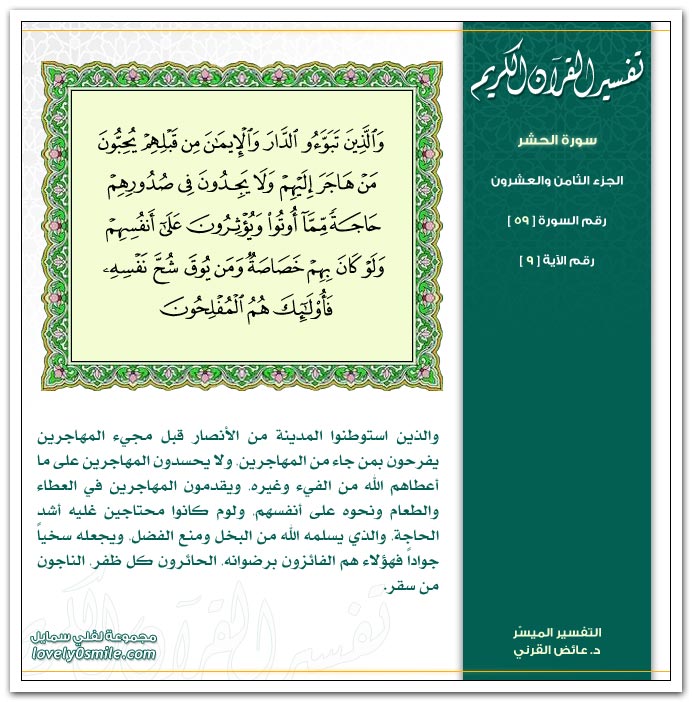 تفسير القرآن الكريم
سورة الحشر
الجزء الثامن والعشرون
رقم السورة [ ٥٩ ]
رقم الآية [ ٩ ]
وَٱلَّذِينَ تَبَوَّءُو ٱلدَّارَ وَٱلْإِيمَٰنَ مِن قَبْلِهِمْ يُحِبُّونَ
مَنْ هَاجَرَ إِلَيْهِمْ وَلَا يَجِدُونَ فِى صُدُورِهِمْ
حَاجَةً مِّمَّآ أُوتُوا۟ وَيُؤْثِرُونَ عَلَىٰٓ أَنفُسِهِمْ
وَلَوْ كَانَ بِهِمْ خَصَاصَةٌ وَمَن يُوقَ شُحَّ نَفْسِهِۦ
فَأُو۟لَٰٓئِكَ هُمُ ٱلْمُفْلِحُونَ
والذين استوطنوا المدينة من الأنصار قبل مجيء المهاجرين
يفرحون بمن جاء من المهاجرين، ولا يحسدون المهاجرين على ما
أعطاهم الله من الفيء وغيره، ويقدمون المهاجرين في العطاء
والطعام ونحوه على أنفسهم، ولوم كانوا محتاجين غليه أشد
الحاجة، والذي يسلمه الله من البخل ومنع الفضل، ويجعله سخياً
جواداً فهؤلاء هم الفائزون برضوانه، الحائرون كل ظفر، الناجون
من سقر.
تفسير القرآن الكريم
مجموعة لفلي سمايل
lovely0smile.com
التفسير الميسّر
د. عائض القرني